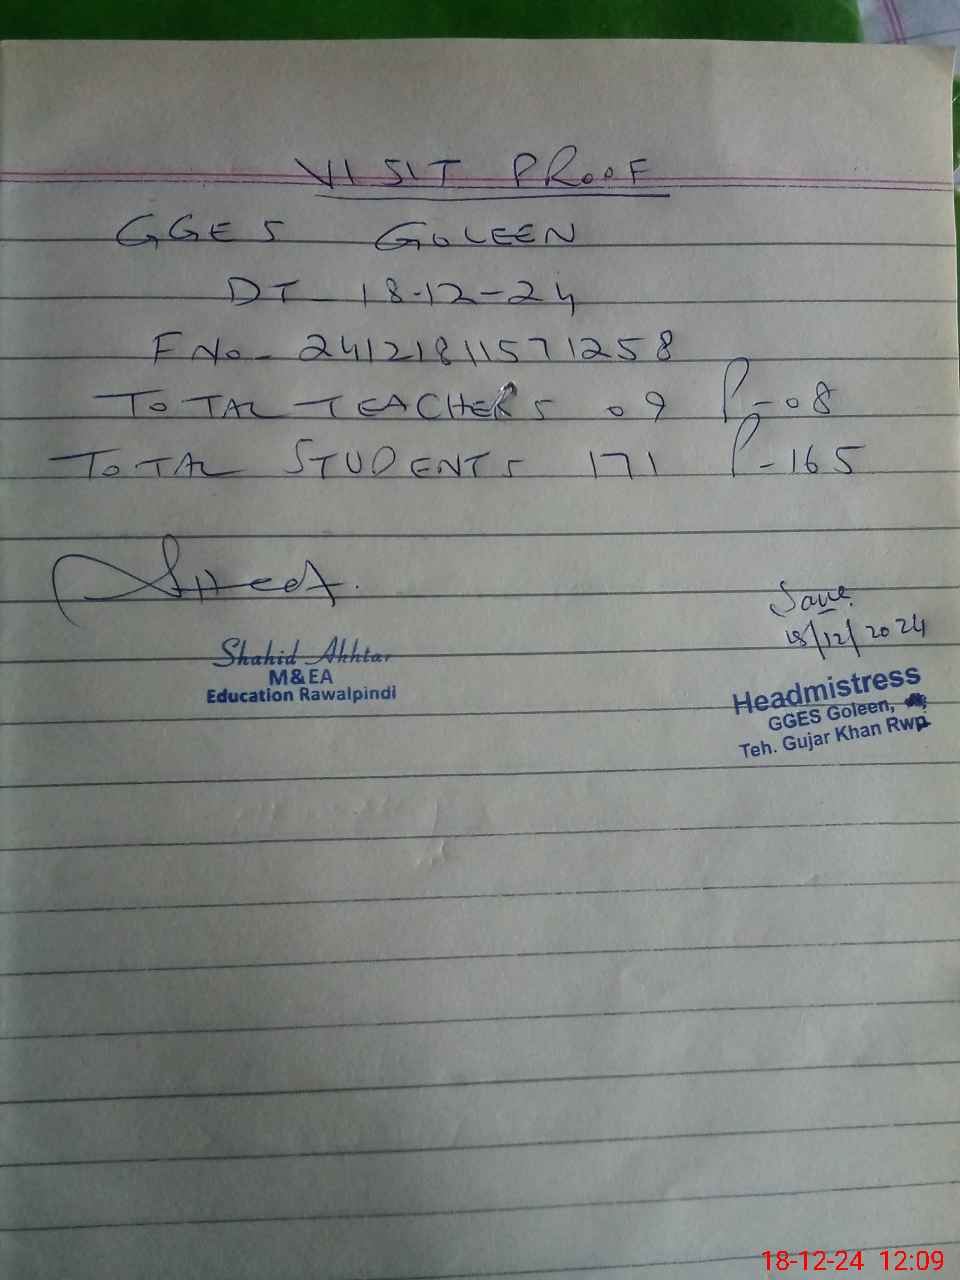 VISIT PROOF
GGES GOLEEN
DT 18-12-24
F No- 24121811571258
TOTAL TEACHERS 09 P-08
TOTAL STUDENTS 171 P-165
Shahid Akhtar
M&EA
Education Rawalpindi
18/12/2024
Headmistress
GGES Goleen,
Teh. Gujar Khan Rwp
18-12-24 12:09